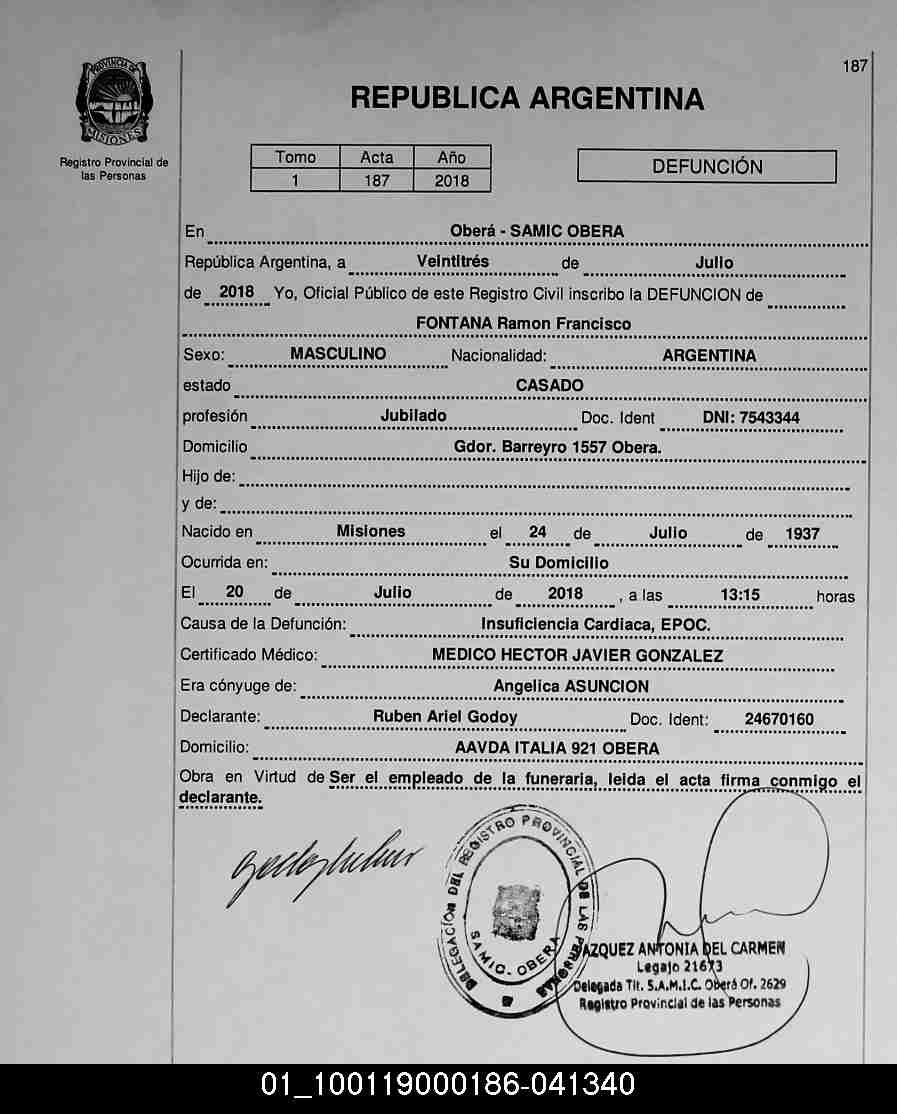 187
PROVINCIA DE
MISIONES
Registro Provincial de
las Personas
REPUBLICA ARGENTINA
Tomo Acta Año
1 187 2018
DEFUNCIÓN
En Oberá - SAMIC OBERA
República Argentina, a Veintitrés de Julio
de 2018 Yo, Oficial Público de este Registro Civil inscribo la DEFUNCION de
FONTANA Ramon Francisco
Sexo: MASCULINO Nacionalidad: ARGENTINA
estado CASADO
profesión Jubilado Doc. Ident DNI: 7543344
Domicilio Gdor. Barreyro 1557 Obera.
Hijo de:
y de:
Nacido en Misiones el 24 de Julio de 1937
Ocurrida en: Su Domicilio
El 20 de Julio de 2018 , a las 13:15 horas
Causa de la Defunción: Insuficiencia Cardiaca, EPOC.
Certificado Médico: MEDICO HECTOR JAVIER GONZALEZ
Era cónyuge de: Angelica ASUNCION
Declarante: Ruben Ariel Godoy Doc. Ident: 24670160
Domicilio: AAVDA ITALIA 921 OBERA
Obra en Virtud de Ser el empleado de la funeraria, leida el acta firma conmigo el
declarante.
DELEGACIÓN DEL REGISTRO PROVINCIAL DE LAS PERSONAS
S.A.M.I.C. - OBERA
AZQUEZ ANTONIA DEL CARMEN
Legajo 21673
Delegada Tit. S.A.M.I.C. Oberá Of. 2629
Registro Provincial de las Personas
01_100119000186-041340